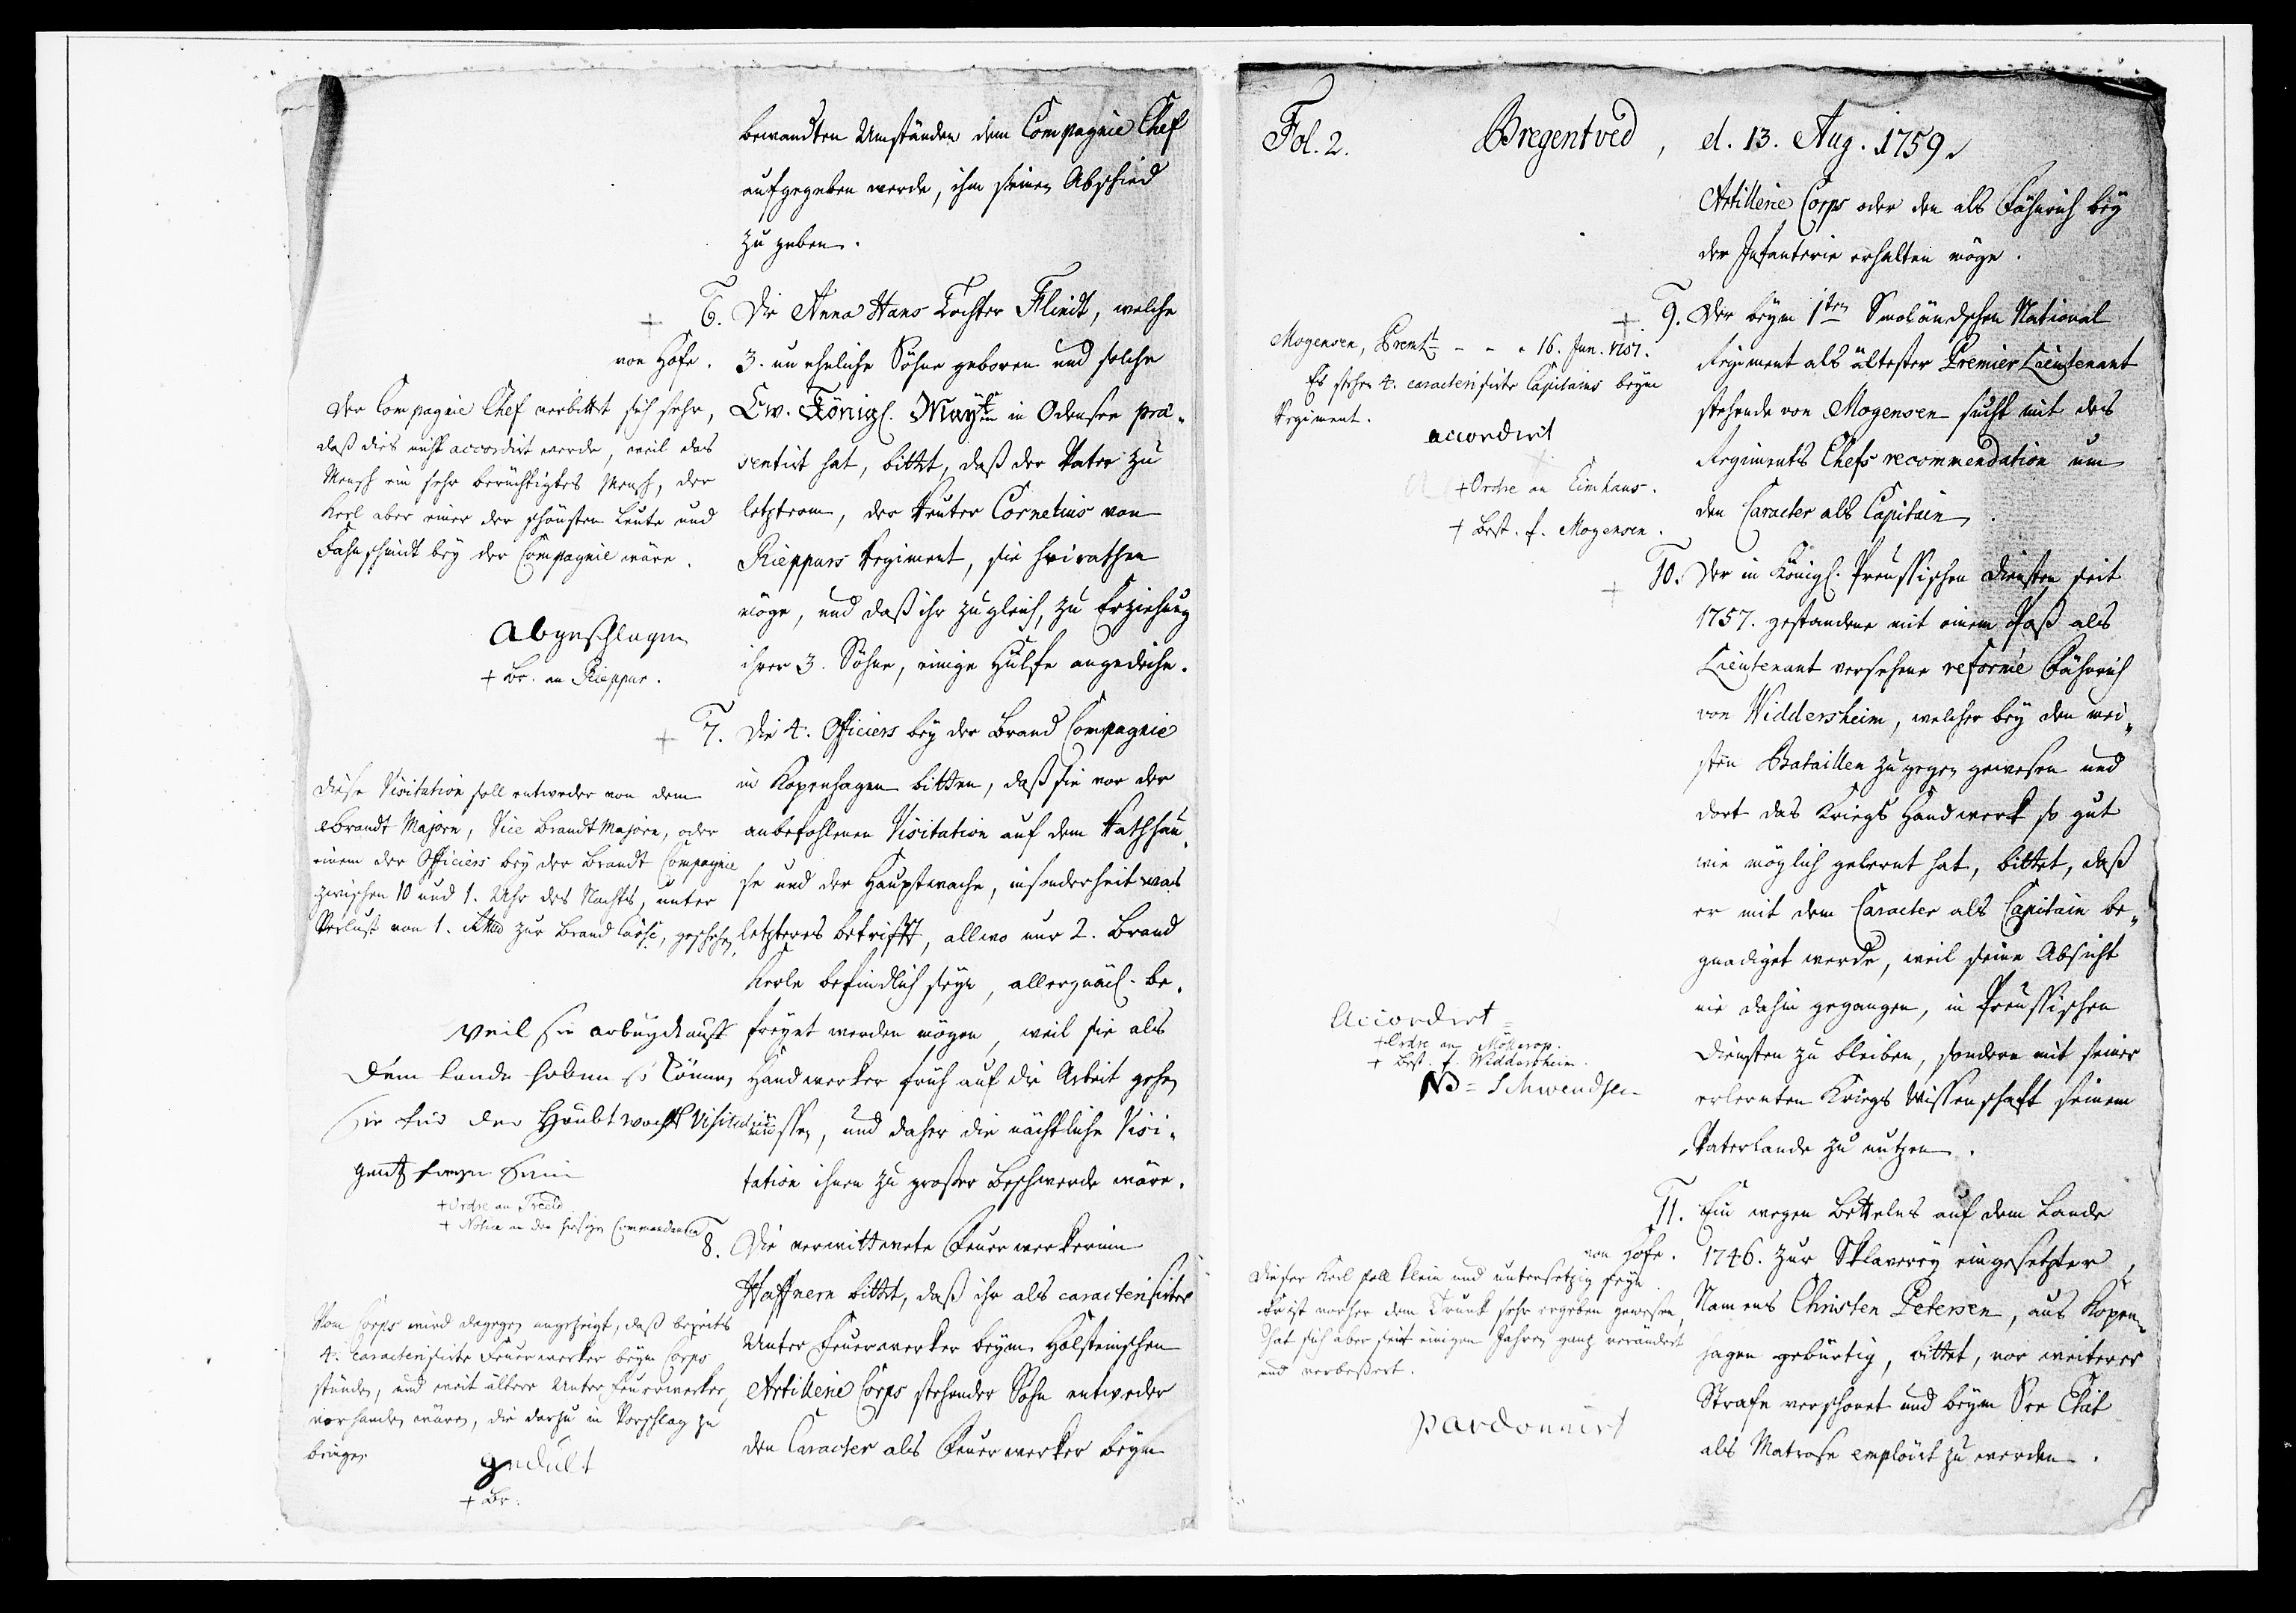 bewandten Umständen dem Compagnie Chef
aufgegeben werde, ihm seinen Abschied
zu geben.
+ 6. Die Anna Hans Tochter Flindt, welche
von Hofe. 3. uneheliche Söhne geboren und solche
Ew. Königl. Maytt in Odensee prä-
sentirt hat, bittet, daß der Vater zu
letzterem, der Reuter Cornelius von
Rieppurs Regiment, sie heirathen
möge, und daß ihr zugleich, zu Erziehung
ihrer 3. Söhne, einige Hülfe angedeihe.
Der Compagnie Chef verbittet sich sehr,
daß dies nicht accordirt werde, weil das
Mensch ein sehr berüchtigtes Mensch, der
Kerl aber einer der schönsten Leute und
Fahnschmidt bey der Compagnie wäre.
Abgeschlagen
+ Br. an Rieppur.
+ 7. Die 4. Officiers bey der Brand Compagnie
in Kopenhagen bitten, daß sie von der
anbefohlenen Visitation auf dem Rathhau-
se und der Hauptwache, insonderheit was
letzteres betrifft, allwo nur 2. Brand
Kerle befindlich seyn, allergnäd. be-
freyet werden mögen, weil sie als
Handwerker früh auf die Arbeit gehen
müssen, und daher die nächtliche Visi-
tation ihnen zu großer Beschwerde wäre.
Diese Visitation soll entweder von dem
Brandt Majorn, Vice Brandt Majorn, oder
einem der Officiers bey der Brandt Compagnie
zwischen 10 und 1. Uhr des Nachts, unter
Verlust von 1. Rthlr zur Brand Casse, geschehen.
Weil sie
dem Lande haben so können
sie für der Haubtwacht Visitation
gantz freye sein
+ Ordre an
+ Notice an den hiesigen Commandanten
8. Die verwittwete Feuerwerkerinn
Haffnern bittet, daß ihr als caracterisirter
Unter Feuerwerker beym Holsteinischen
Artillerie Corps stehender Sohn entweder
den Caracter als Feuerwerker beym
Vom Corps wird dagegen angezeigt, daß bereits
4. caracterisirte Feuerwerker beym Corps
stünden, und weit ältere Unter Feuerwerker,
vorhanden wären, die darzu in Vorschlag zu
bringen
gedult
+ Br.
Fol. 2. Bregentved, d. 13. Aug. 1759.
Artillerie Corps oder den als Fähnrich bey
der Infanterie erhalten möge.
+ 9. Der beym 1ten Smoländschen National
Regiment als ältester Premier Lieutenant
stehende von Mogensen sucht mit des
Regiments Chefs recommendation um
den Caracter als Capitain.
Mogensen, Premlt - - - 16. Jun. 1751.
Es stehen 4. caracterisirte Capitains beym
Regiment.
accordirt
+ Ordre an Eimhaus.
+ Best. f. Mogensen.
+ 10. Der in Königl. Preussischen Diensten seit
1757. gestandene mit einem Paß als
Lieutenant versehene reformé Fähnrich
von Widdersheim, welcher bey den mei-
sten Bataillen zugegen gewesen und
dort das Kriegs Handwerk so gut
wie möglich gelernt hat, bittet, daß
er mit dem Caracter als Capitain be-
gnadiget werde, weil seine Absicht
nie dahin gegangen, in Preussischen
Diensten zu bleiben, sondern mit seiner
erlernten Kriegs Wissenschaft seinem
Vaterlande zu nutzen.
Accordirt =
+ Ordre an Möllerop.
+ Best. f. Widdersheim.
NB = Schwendsen
11. Ein wegen Bettelns auf dem Lande
von Hofe. 1746. zur Sklaverey eingesetzter,
Namens Christen Petersen, aus Kopen-
hagen gebürtig, bittet, vor weiterer
Strafe verschonet und beym See Etat
als Matrose emploirt zu werden.
Dieser Kerl soll klein und untersetzig seyn.
Er ist vorher dem Trunk sehr ergeben gewesen,
hat sich aber seit einigen Jahren ganz verändert
und verbessert.
pardonnirt